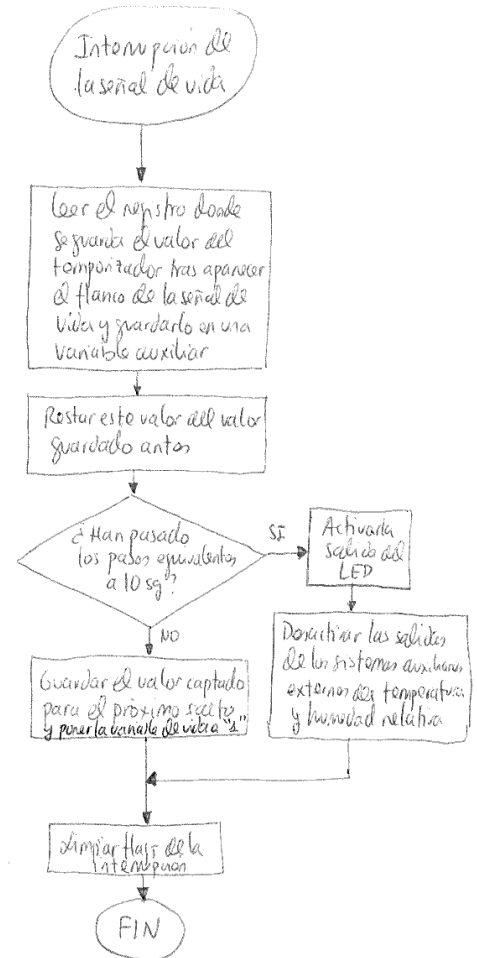 Interrupción de
la señal de vida
Leer el registro donde
se guarda el valor del
temporizador tras aparecer
el flanco de la señal de
vida y guardarlo en una
variable auxiliar
Restar este valor del valor
guardado antes
¿Han pasado
los pasos equivalentes
a 10 sg?
SI
Activar la
salida del
LED
Desactivar las salidas
de los sistemas auxiliares
externos de temperatura
y humedad relativa
NO
Guardar el valor captado
para el próximo salto
y poner la variable de vida a "1"
Limpiar flag de la
interrupción
FIN